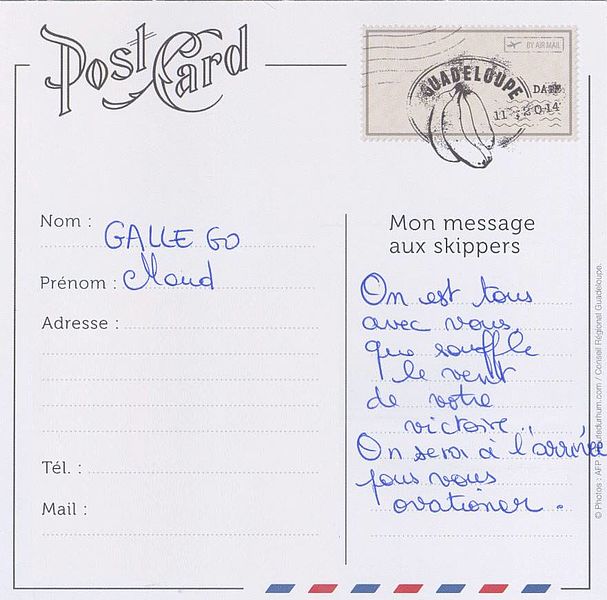 Post Card
BY AIR MAIL
GUADELOUPE
DATE
11 . 2014
Nom : GALLEGO
Prénom : Maud
Adresse :
Tél. :
Mail :
Mon message
aux skippers
On est tous
avec vous,
que souffle
le vent
de votre
victoire..
On sera à l'arrivée
pour vous
ovationer.
© Photos : AFP / routedurhum.com / Conseil Régional Guadeloupe.